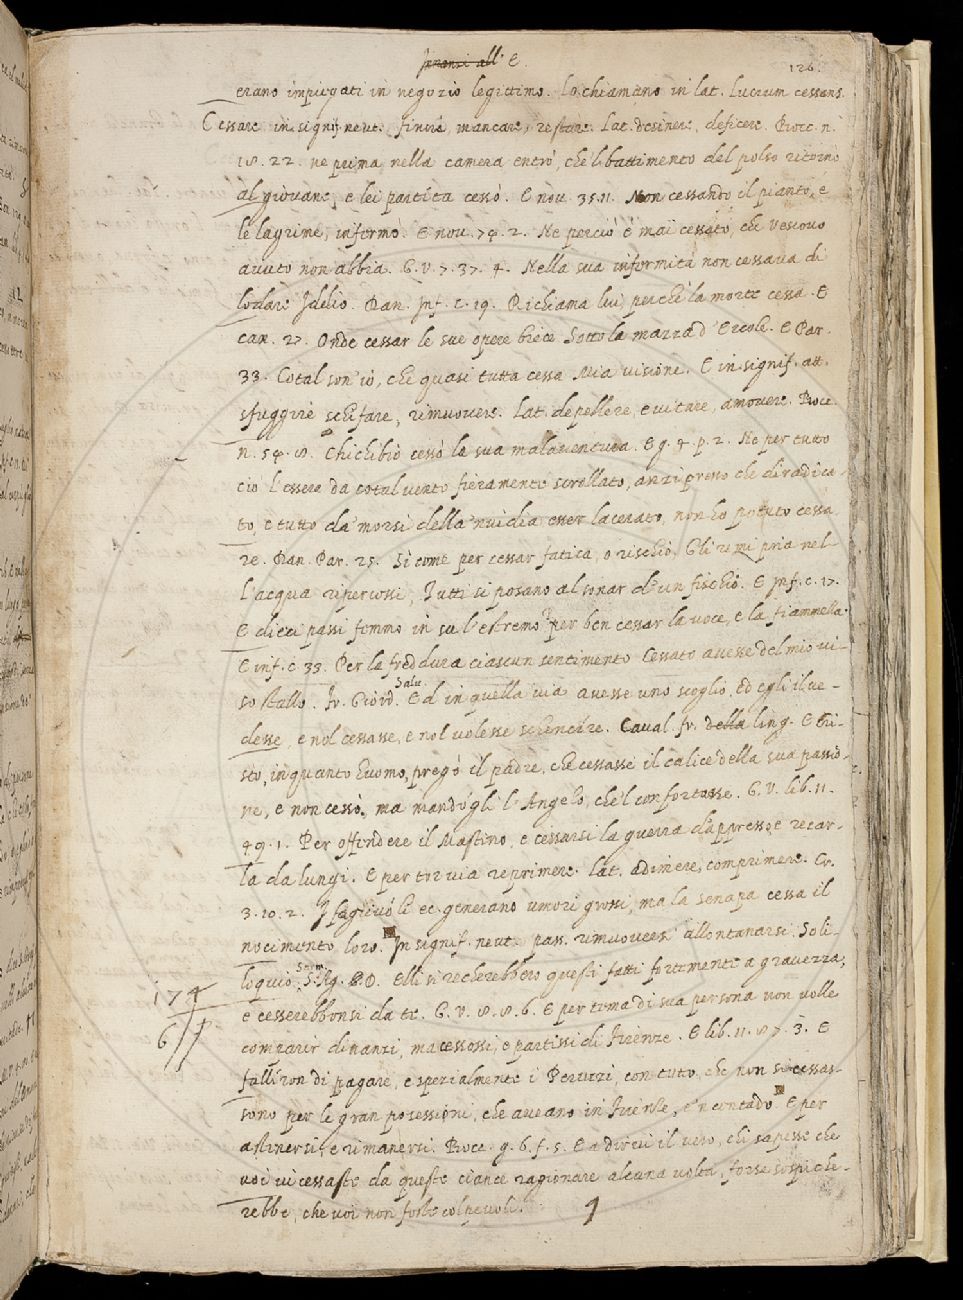 innanzi all' E.
126.
erano impiegati in negozio legittimo. Lo chiamano in lat. Lucrum cessans.
Cessare in signif. neut. finire, mancare, restare. Lat. desinere, deficere. Bocc. n.
18. 22. ne prima nella camera entrò, che 'l battimento del polso ritornò
al giovane, e lei partita cessò. E nov. 35. 11. Non cessando il pianto, e
le lagrime, infermò. E nov. 74. 2. Ne perciò è mai cessato, che vescovo
avuto non abbia. G. V. 7. 37. 4. Nella sua infermità non cessava di
lodare Idelio. Dan. Inf. c. 19. Richiama lui, perchè la morte cessa. E
can. 27. Onde cessar le sue opere biece Sotto la mazza d' Ercole. E Par.
33. Cotal son' io, che quasi tutta cessa Mia visione. E in signif. att.
sfuggire schifare, rimuovere. Lat. depellere, evitare, amovere. Bocc.
n. 54. 8. Chichibio cessò la sua malaventura. E g. 4. p. 2. Ne per tutto
ciò l' essere da cotal vento fieramente scrollato, anzi presso che diradica-
to, e tutto da' morsi della 'nvidia esser lacerato, non ho potuto cessa,
re. Dan. Par. 25. Sì come per cessar fatica, o rischio, Gli remi pria nel-
l' acqua ripercossi, Tutti si posano al sonar d' un fischio. E Inf. c. 17.
E dieci passi femmo in su l' estremo Per ben cessar la rena, e la fiammella.
E inf. c. 33. Per la freddura ciascun sentimento Cessato avesse del mio vi-
so stallo. Fr. Giord. Salv. Ed in quella via avesse uno scoglio, ed egli il ve-
desse, e nol cessasse, e nol volesse schencire. Caval. fr. della ling. E Cri-
sto, in quanto huomo, pregò il padre, che cessasse il calice della sua passio-
ne, e non cessò, ma mandògli l' Angelo, che 'l confortasse. G. V. lib. 11.
49. 1. Per offendere il Mastino, e cessarsi la guerra d'appresso, e recar-
la da lungi. E per tor via reprimere. Lat. adimere, comprimere. Cr.
3. 10. 2. I fagiuoli ec. generano umori grossi, ma la senapa cessa il
nocimento loro. In signif. neut. pass. rimuoversi allontanarsi. Soli-
loquio Serm. S. Ag. D. Elli si recherebbero questi fatti fortemente a gravezza,
e cesserebbonsi da te. G. V. 8. 8. 6. E per tema di sua persona non volle
comparir dinanzi, ma cessossi, e partissi di Firenze. E lib. 11. 87. 3. E
falliron di pagare, e spezialmente i Peruzzi, con tutto, che non si cessas-
sono per le gran possessioni, che aveano in Firenze, e 'n contado. E per
astenersi, e rimanersi. Bocc. g. 6. f. 5. E a dirvi il vero, chi sapesse che
voi vi cessaste da queste ciance ragionare alcuna volta, forse sospiche-
rebbe, che voi non foste colpevoli.
174
6